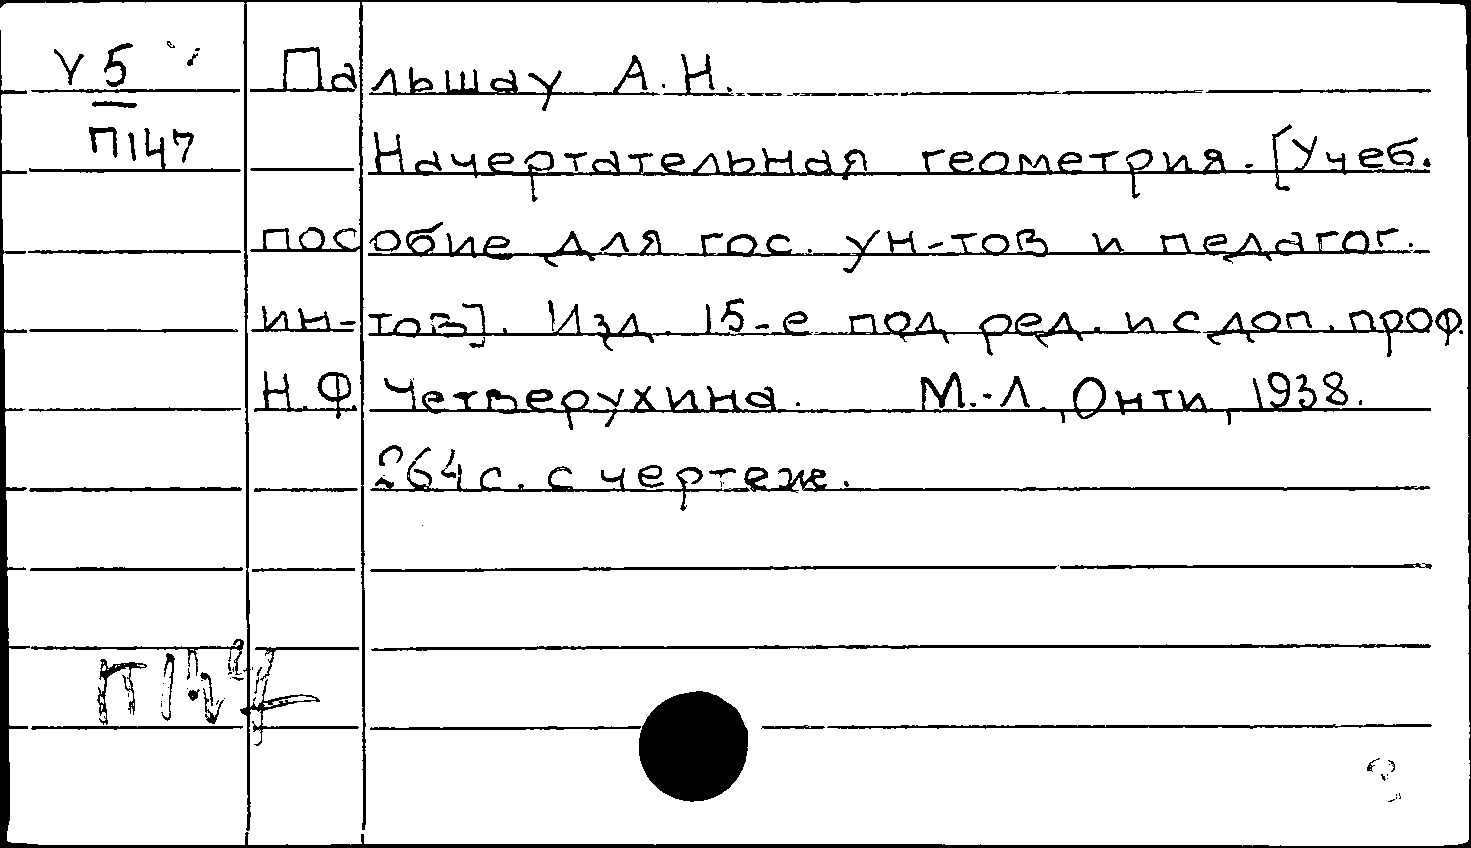 У5 Пальшау А.Н.
П147 Начертательная геометрия. [Учеб.
пособие для гос. ун-тов и педагог.
ин-тов]. Изд. 15-е под ред. и с доп. проф.
Н.Ф Четверухина. М.-Л., Онти, 1938.
264 с. с чертеж.
П147